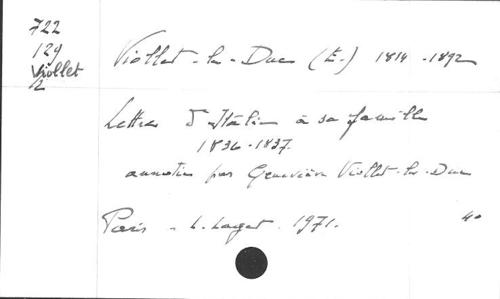 722
129
Viollet
2
Viollet-le-Duc (E.) 1814-1892
Lettres d'Italie à sa famille
1836-1837.
annotées par Geneviève Viollet-le-Duc
Paris - L. Laget. 1971. 40